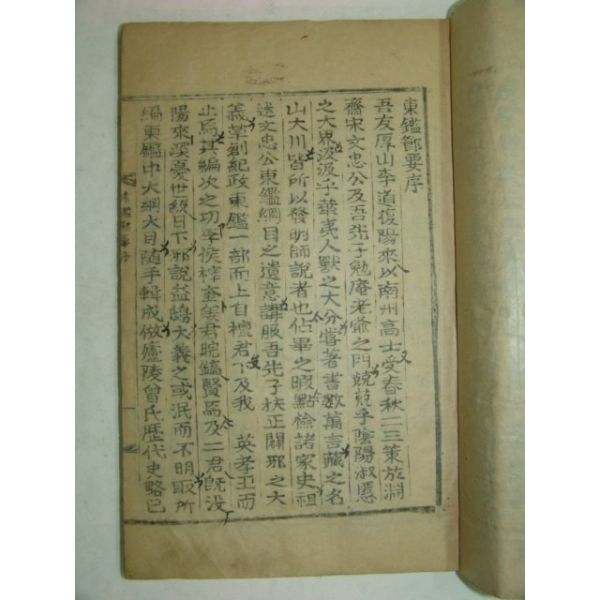 東鑑節要序
吾友厚山李道復陽來以南州高士受春秋一二策於淵
齋宋文忠公及吾先子勉庵老爺之門兢兢乎陰陽淑慝
之大界汲汲乎華夷人獸之大分嘗著書數萬言藏之名
山大川皆所以發明師說者也佔畢之暇點檢諸家史祖
述文忠公東鑑綱目之遺意講服吾先子扶正闢邪之大
義草創紀政東鑑一部而上自檀君下及我 英孝王而
止焉其編次之功李侯梓奎姜君晥鎬賢焉及二君旣沒
陽來深憂世級日下邪說益鴟大義之或泯而不明取所
編東鑑中大綱大目隨手輯成倣廬陵曾氏歷代史略已